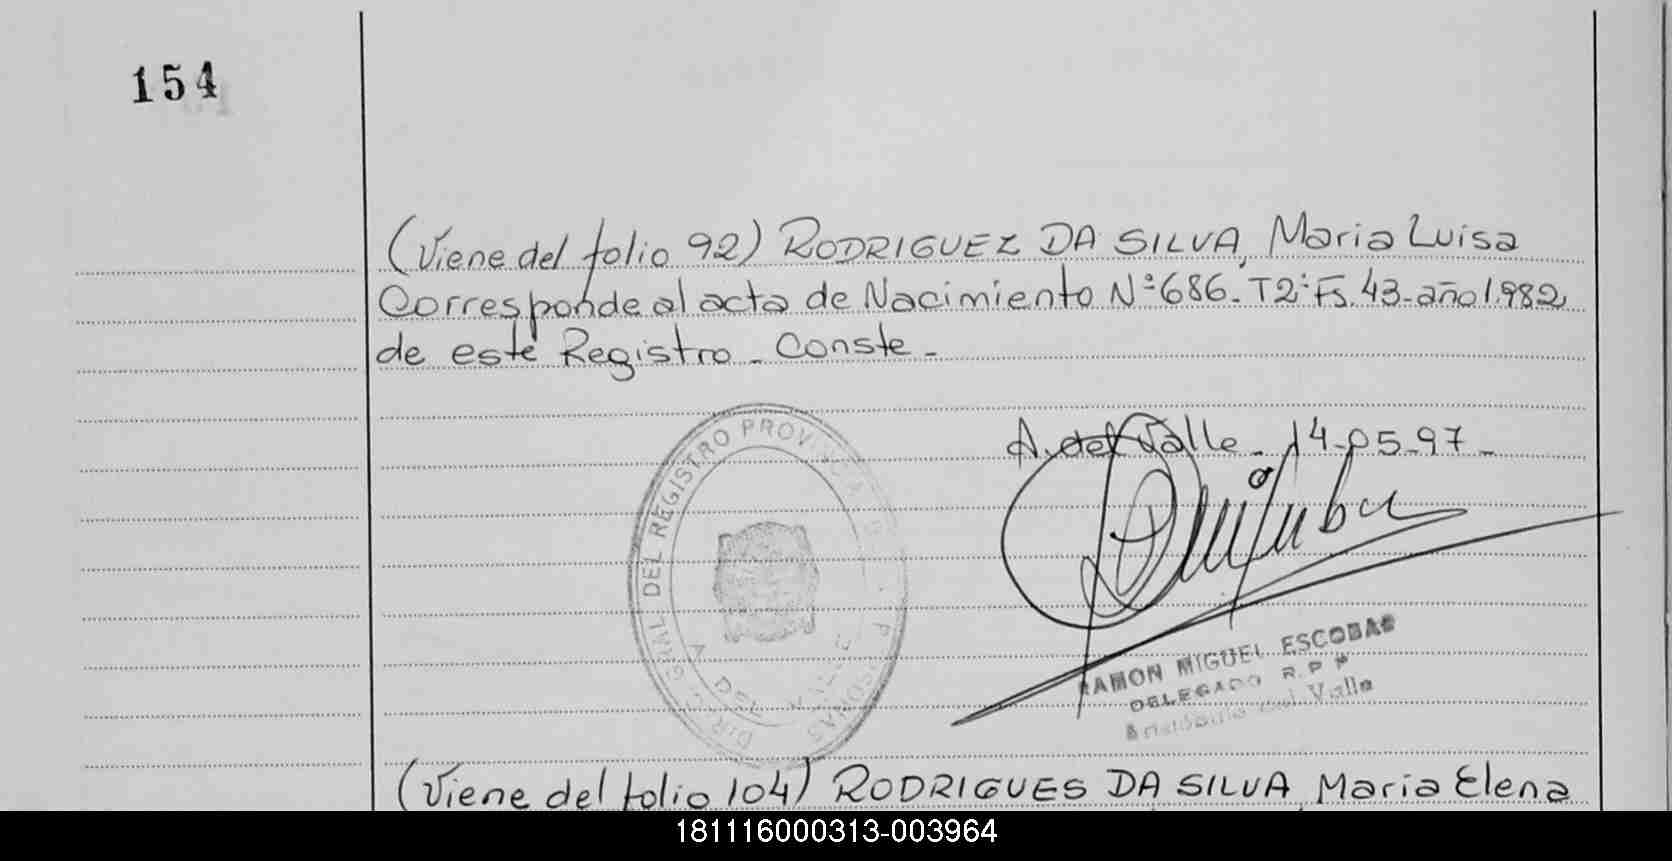 154
(Viene del folio 92) RODRIGUEZ DA SILVA, Maria Luisa
Corresponde al acta de Nacimiento Nº 686. T2º Fs. 43 - año 1.982
de este Registro - Conste -
A. del Valle - 14-05-97 -
DIREC. GRAL. DEL REGISTRO PROVINCIAL
RAMON MIGUEL ESCOBAR
DELEGADO R.P.P
Aristóbulo del Valle
(Viene del folio 104) RODRIGUES DA SILVA, Maria Elena
181116000313-003964